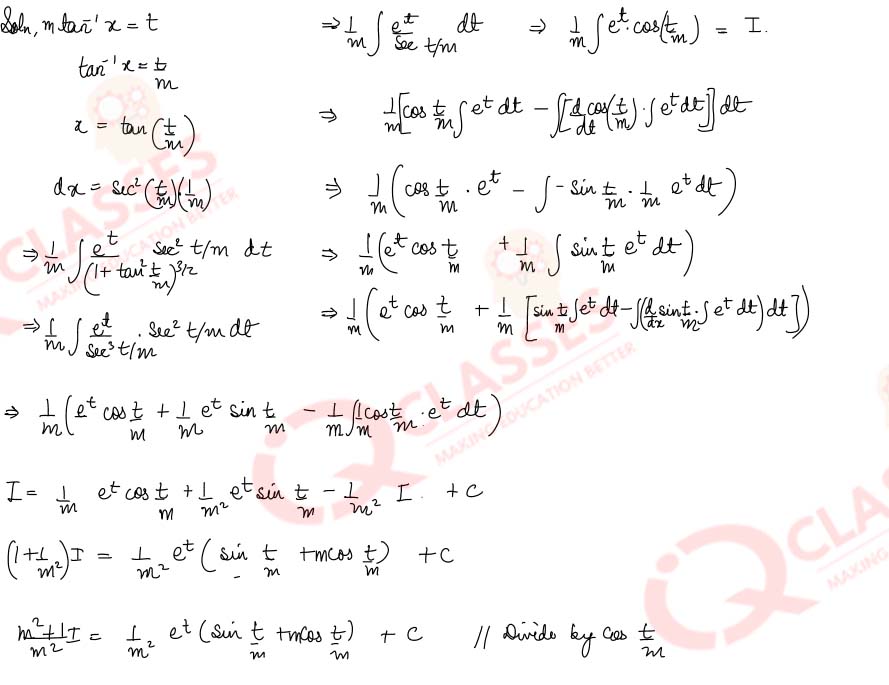 Soln, m tan⁻¹ x = t
tan⁻¹ x = t/m
x = tan (t/m)
dx = sec² (t/m)(1/m)
⇒ 1/m ∫ e^t/(1 + tan² t/m)^3/2 sec² t/m dt
⇒ 1/m ∫ e^t/sec³ t/m . sec² t/m dt
⇒ 1/m ∫ e^t/sec t/m dt ⇒ 1/m ∫ e^t. cos(t/m) = I.
⇒ 1/m [cos t/m ∫ e^t dt − ∫[d/dt cos(t/m) . ∫ e^t dt]] dt
⇒ 1/m (cos t/m . e^t − ∫ -sin t/m . 1/m e^t dt)
⇒ 1/m (e^t cos t/m + 1/m ∫ sin t/m e^t dt)
⇒ 1/m (e^t cos t/m + 1/m [sin t/m ∫ e^t dt − ∫(d/dx sin t/m . ∫ e^t dt) dt])
⇒ 1/m (e^t cos t/m + 1/m e^t sin t/m − 1/m ∫ 1/m cos t/m . e^t dt)
I = 1/m e^t cos t/m + 1/m² e^t sin t/m − 1/m² I . + C
(1 + 1/m²) I = 1/m² e^t (sin t/m + m cos t/m) + C
m²+1/m² I = 1/m² e^t (sin t/m + m cos t/m) + C // Divide by cos t/m
CLASSES
MAKING EDUCATION BETTER
IQ CLASSES
MAKING EDUCATION BETTER
IQ CLASSES
MAKING EDUCATION